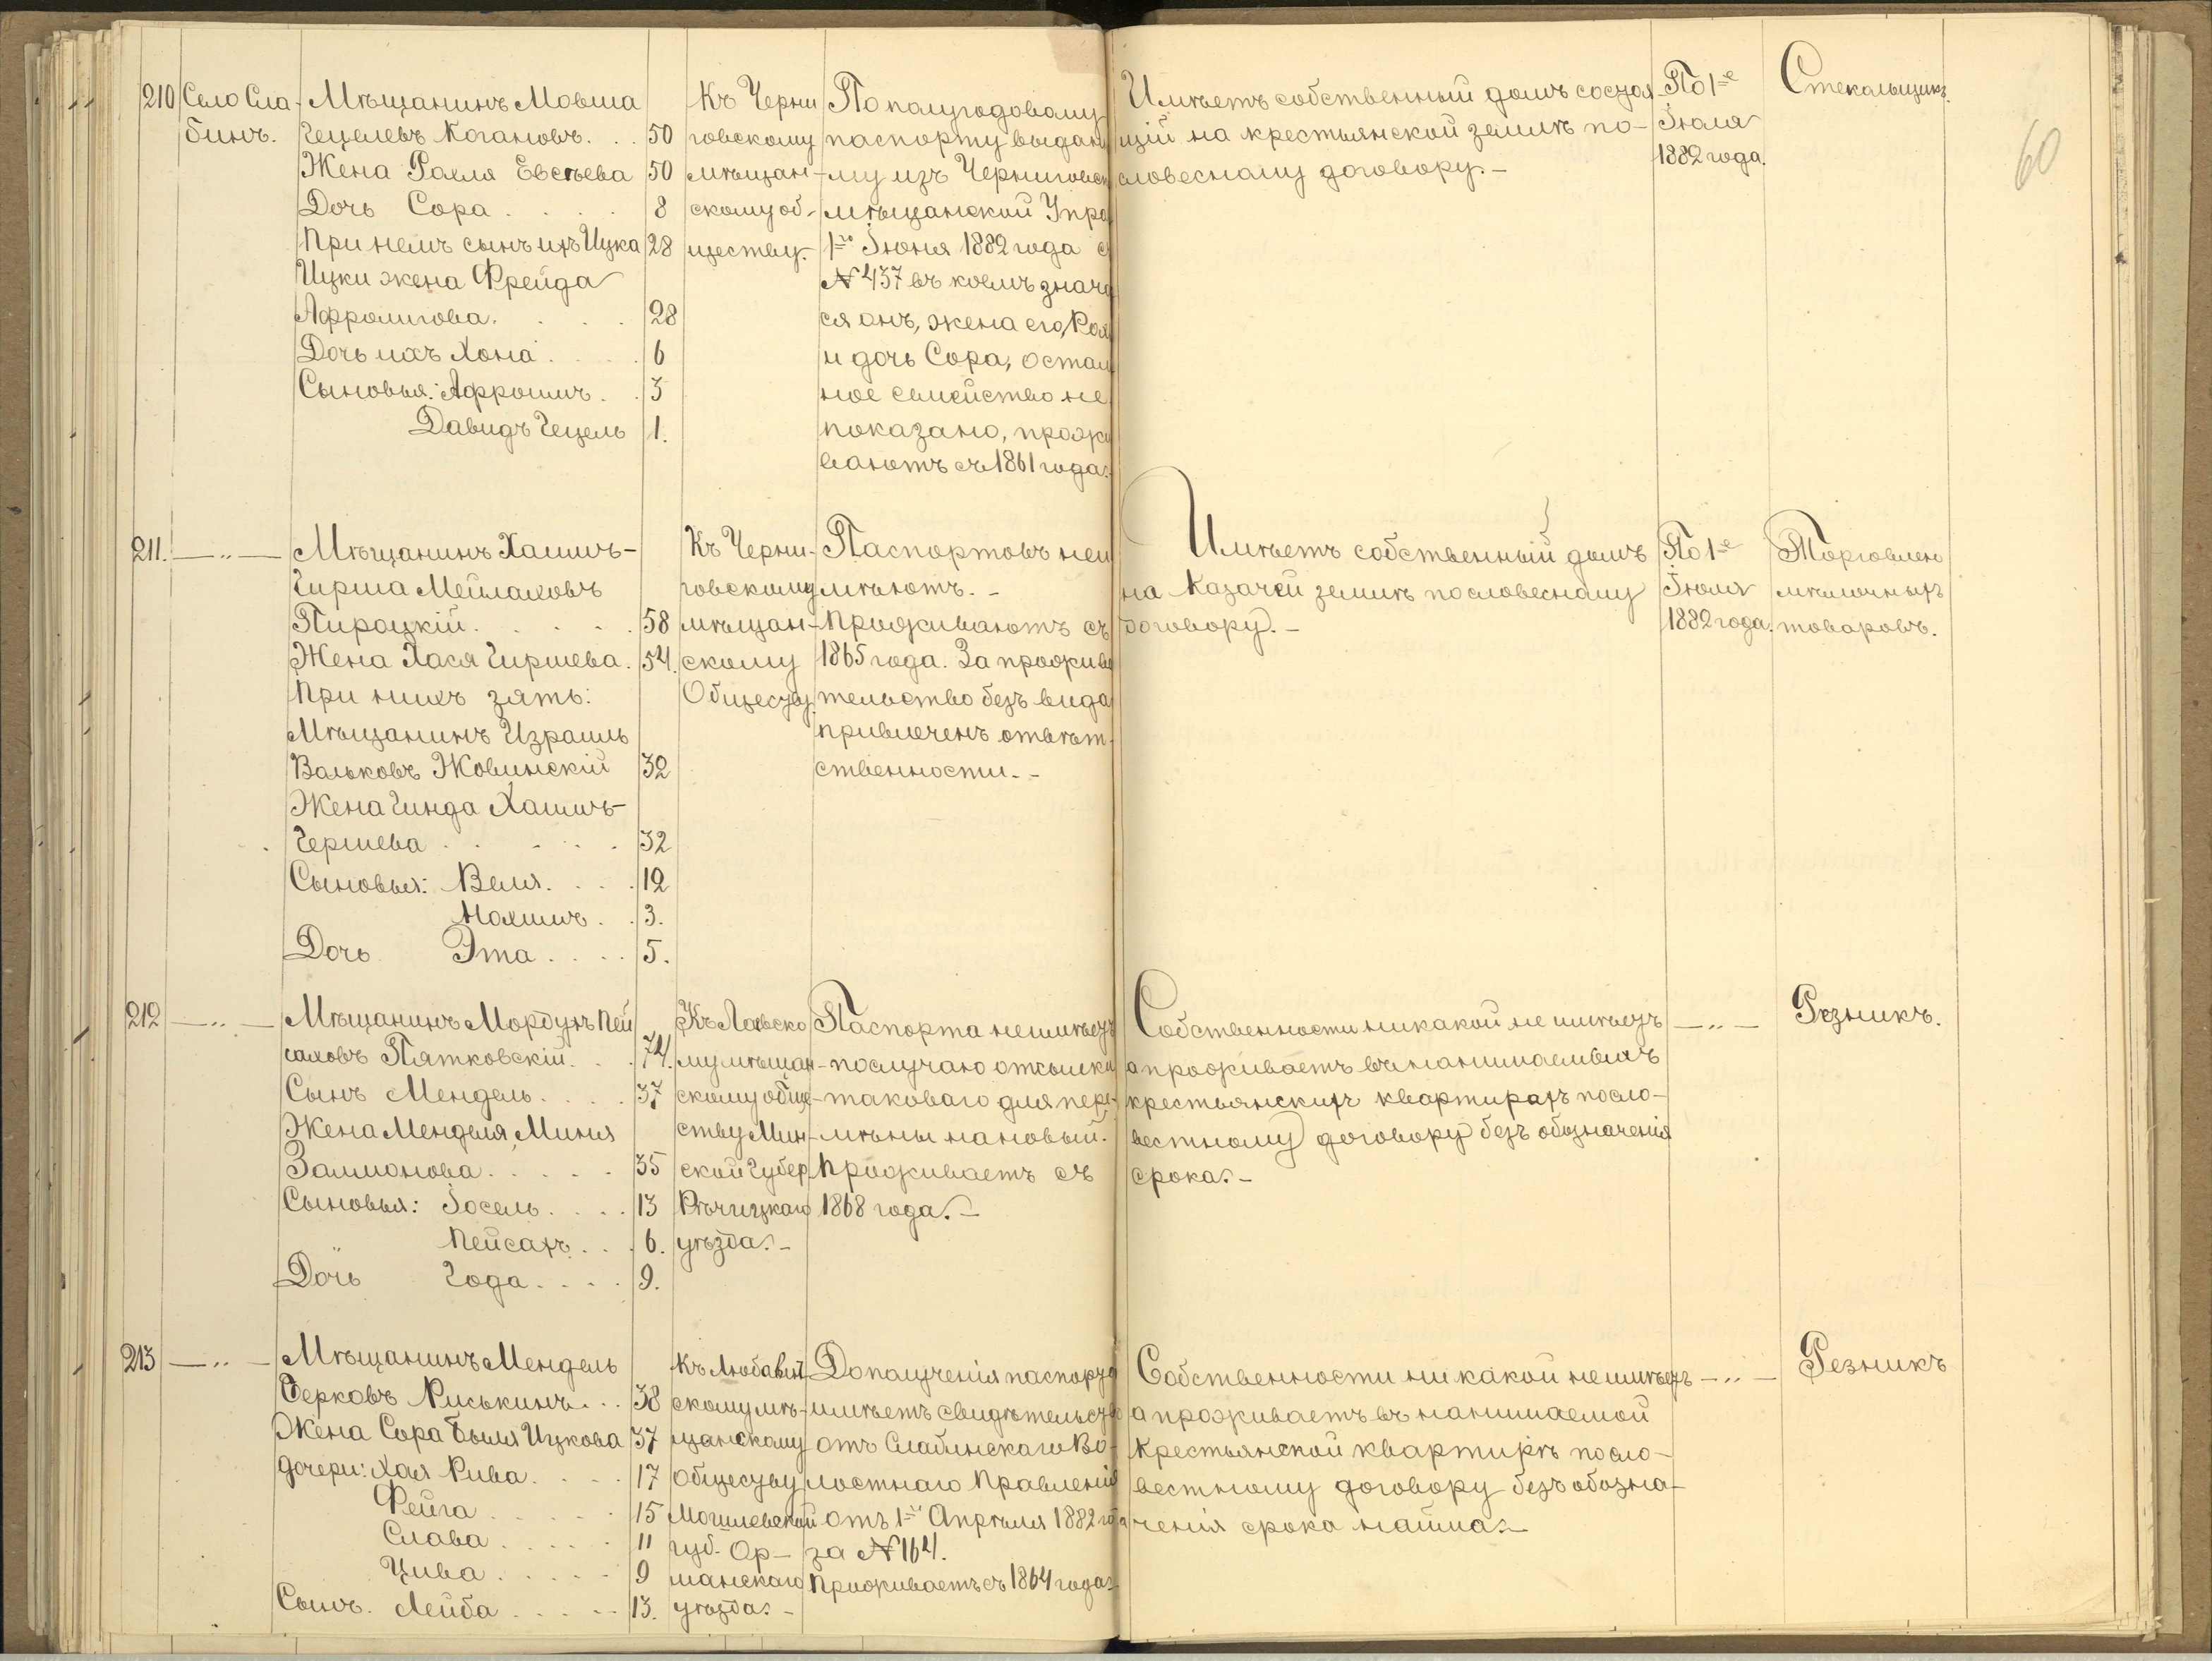 60
210
Село Сла-
бинъ.
Мѣщанинъ Мовша
Гецелевъ Когановъ. . . 50
Жена Рахля Евсѣева 50
Дочь Сора . . . . 8
При немъ сынъ ихъ Ицка 28
Ицки жена Фрейда
Афроимова. . . . . 28
Дочь ихъ Хона . . . . 6
Сыновья: Афроимъ . . 3
Давидъ Гецель 1.
Къ Черни
говскому
мѣщан-
скому об-
ществу.
По полугодовому
паспорту выдан
му изъ Черниговск
мѣщанской Упра
1го Іюня 1882 года
№ 437 въ коемъ знача
ся онъ, жена его,
и дочь Сора, остал
ное семейство не
показано, прожи
ваютъ съ 1861 года.
Имѣетъ собственный домъ состоя-
щій на крестьянской землѣ по-
словесному договору.-
По 1е
Іюля
1882 года.
Стекальщикъ.
211. — „ —
Мѣщанинъ Хаимъ-
Гирша Мейлаховъ
Пироцкій. . . . . 58
Жена Хася Гиршева. 54.
При нихъ зять:
Мѣщанинъ Израиль
Вальковъ Жовинскій 32
Жена Гинда Хаимъ-
Гершева . . . . . 32
Сыновья: Веля. . . . 12
Нахимъ . . 3.
Дочь Эта . . . . 5.
Къ Черни-
говскому
мѣщан-
скому
Обществу.
Паспортовъ неи
мѣютъ.-
Проживаютъ съ
1865 года. За прожива
тельство безъ вида
привлеченъ отвѣт-
ственности.-
Имѣетъ собственный домъ
на Казачей землѣ пословесному
договору.-
По 1е
Іюля
1882 года.
Торговлею
мѣлочныхъ
товаровъ.
212 — „ —
Мѣщанинъ Мордухъ Пей
саховъ Пятковскій. . . 74.
Сынъ Мендель. . . . 37
Жена Менделя, Миня
Залмонова. . . . . 35
Сыновья: Іосель. . . . 13
Пейсахъ. . . 6.
Дочь Года. . . . 9.
Къ Лоевско
му мѣщан-
скому обще-
ству Мин-
ской Губер
Рѣчицкаго
уѣзда.-
Паспорта неимѣетъ
послучаю отсылки
таковаго для пере-
мѣны нановый.
Проживаетъ съ
1868 года.-
Собственности никакой не имѣетъ
а проживаетъ въ нанимаемыхъ
крестьянскихъ квартирахъ посло-
вестному договору безъ обозначенія
срока.-
— „ —
Рѣзникъ.
213 — „ —
Мѣщанинъ Мендель
Берковъ Риськинъ. . . 38
Жена Сора Быля Ицкова 37
Дочери: Хая Рива. . . . 17
Фейга . . . . . 15
Слава . . . . . 11
Цива . . . . . 9
Сынъ. Лейба . . . . . 13.
Къ Любавич
скому мѣ-
щанскому
обществу
Могилевской
губ. Ор-
шанскаго
уѣзда.-
До полученія паспорта
имѣетъ свидѣтельство
отъ Слабинскаго Во-
лостнаго Правленія
отъ 1го Апрѣля 1882 года
за № 164.
Проживаетъ съ 1864 года.
Собственности ни какой неимѣетъ
а проживаетъ въ нанимаемой
Крестьянской квартирѣ посло-
вестному договору безъ обозна-
ченія срока найма.-
— „ —
Резникъ